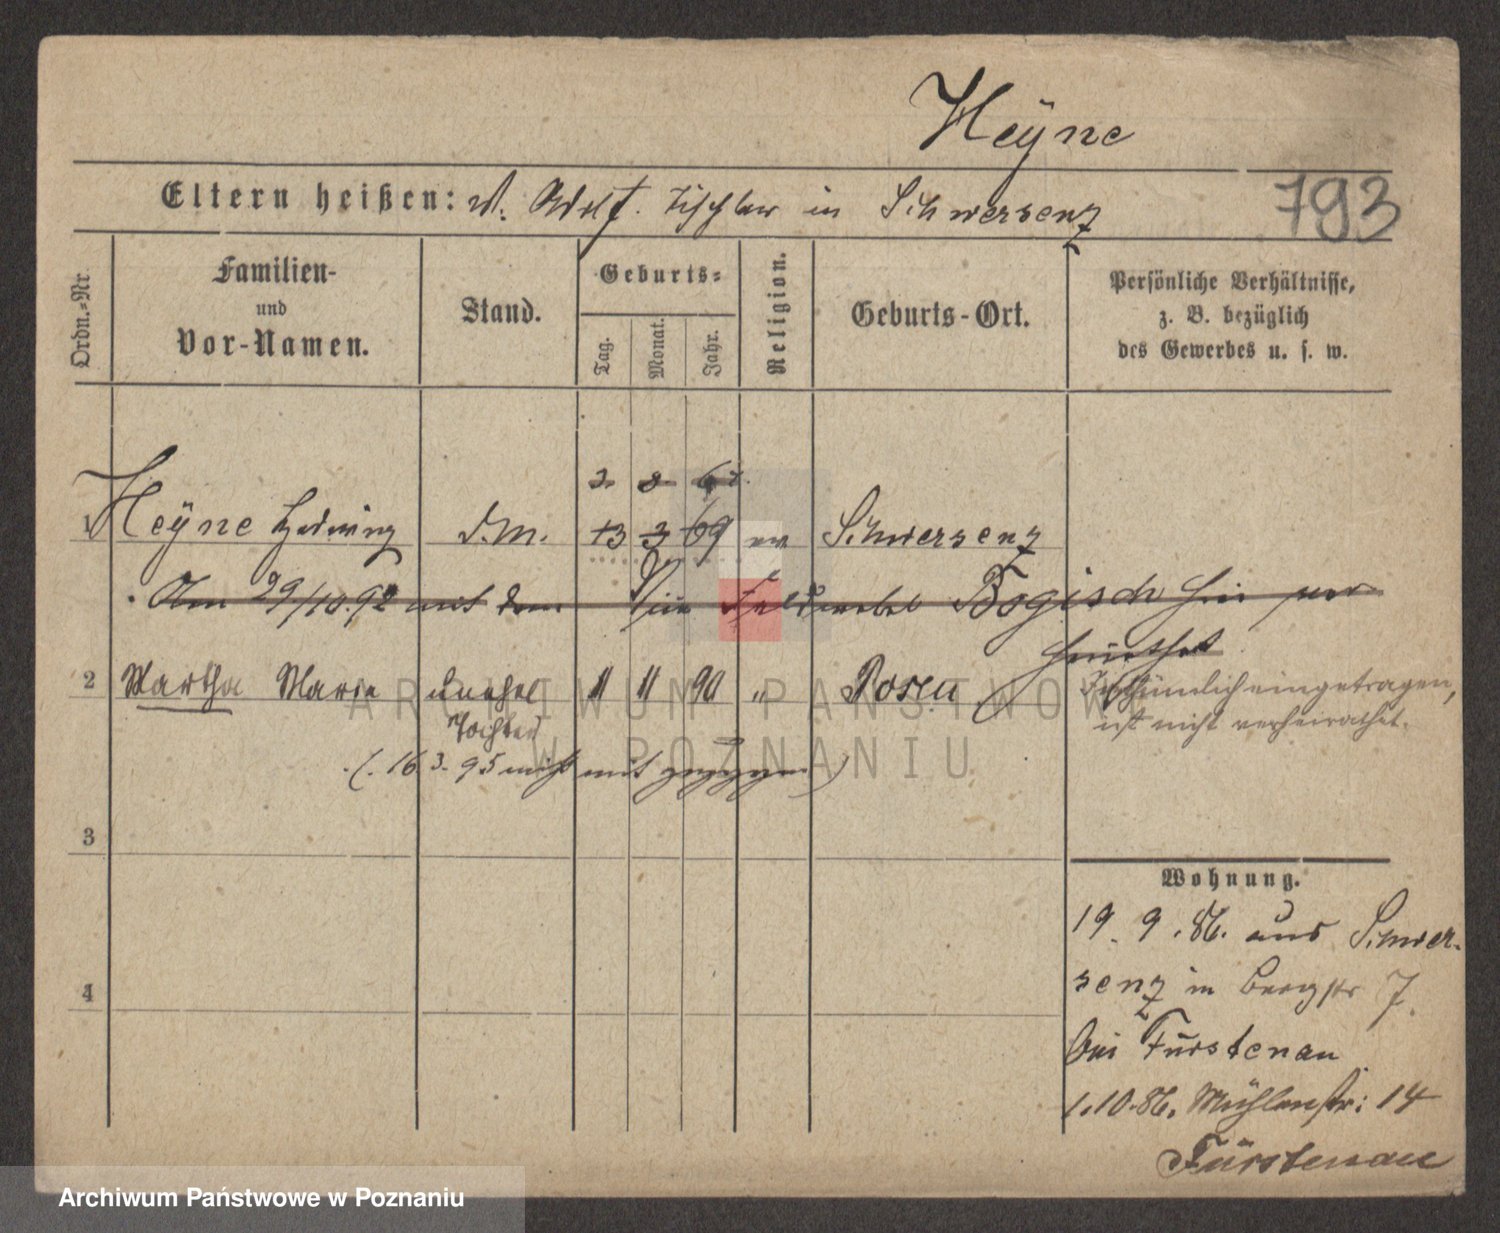 Heÿne
Eltern heißen: V. Adolf. Tischler in Schwersenz
793
Ordn.-Nr.
Familien-
und
Vor-Namen.
Stand.
Geburts-
Tag.
Monat.
Jahr.
Religion.
Geburts-Ort.
Persönliche Verhältnisse,
z. B. bezüglich
des Gewerbes u. s. w.
3 8 67.
1 Heÿne Hedwig D.M. 13 3 69 ev Schwersenz
Am 29/10.92 mit dem Feldwebel Bogisch hier ver-
heirathet
2 Martha Marie unehel 11 11 90 " Posen
Tochter
Irrthümlich eingetragen,
ist nicht verheirathet.
(. 16.3.95 nicht mit gezogen)
3
4
Wohnung.
19. 9. 86. aus Schwer-
senz in Bergstr 7.
bei Fürstenau
1.10.86. Mühlenstr: 14
Fürstenau
ARCHIWUM PAŃSTWOWE
W POZNANIU
Archiwum Państwowe w Poznaniu